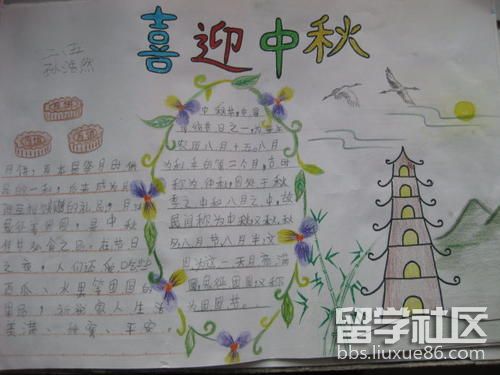 喜迎中秋
二五
孙浩然
月饼
月饼
月饼
月饼,原本是祭月的供
品的一种,后来成为月
的礼品,月
是中秋
节必食之品。在节日
之夜,人们还爱吃些
西瓜、水果等团圆的
果品,祈祝家人生活
美满、甜蜜、平安。
中秋节,中国
节日之一,为每年
农历八月十五。八月
为秋季的第二个月,古时
称为仲秋,因处于秋
季之中和八月之中,故
民间称为中秋又称秋
夕、八月节、八月半、
因为这一天月亮满
圆,象征团圆又称
为团圆节。
留学社区
bbs.liuxue86.com